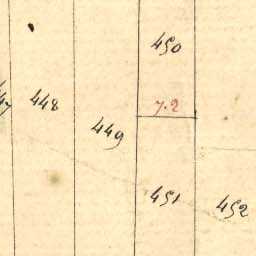 450
7.2
447
448
449
451
452